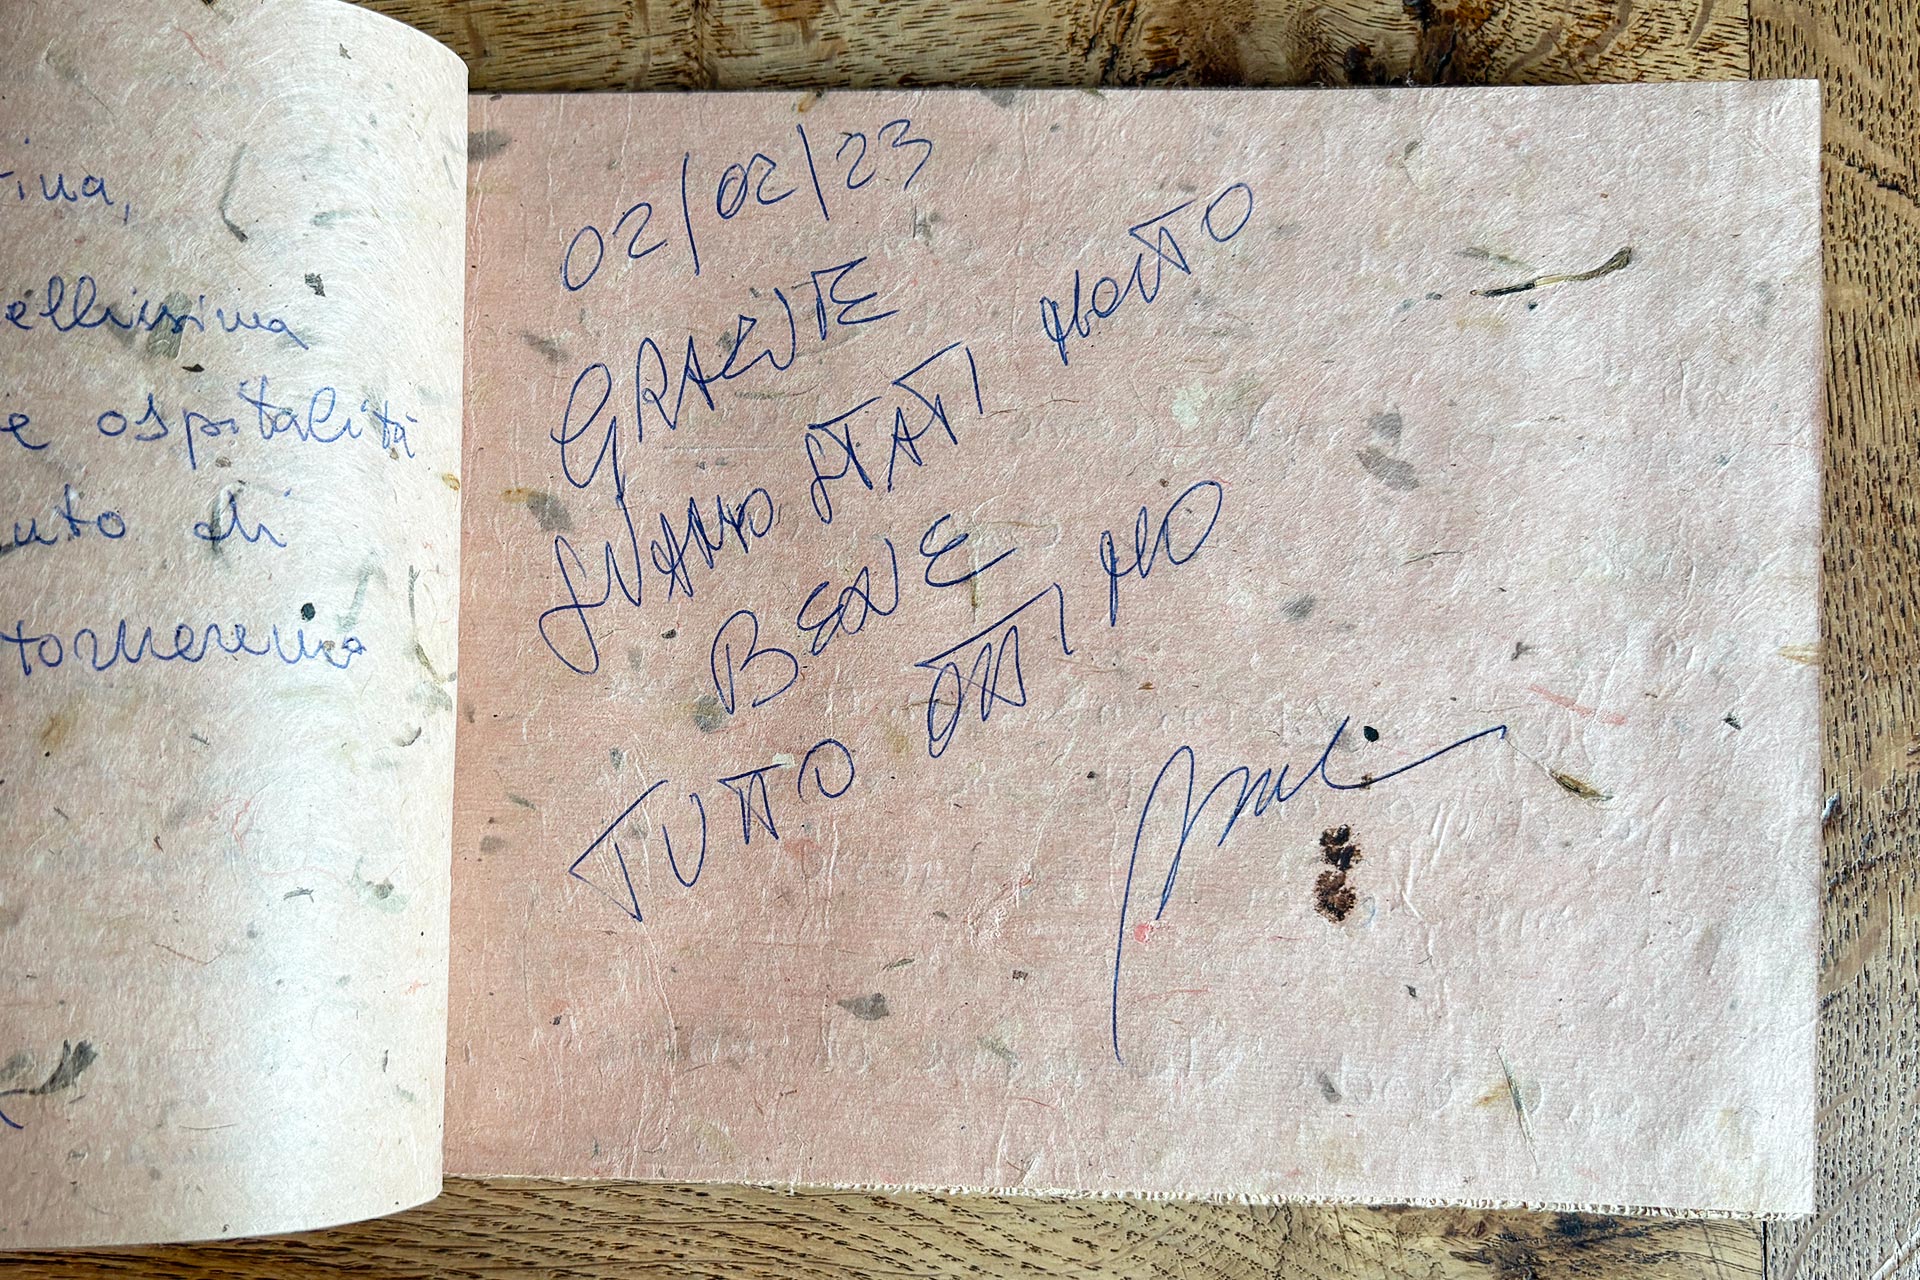 ellissima
e ospitalità
di
torneremo
02/02/23
GRAZIE
SIAMO STATI MOLTO
BENE
TUTTO OTTIMO